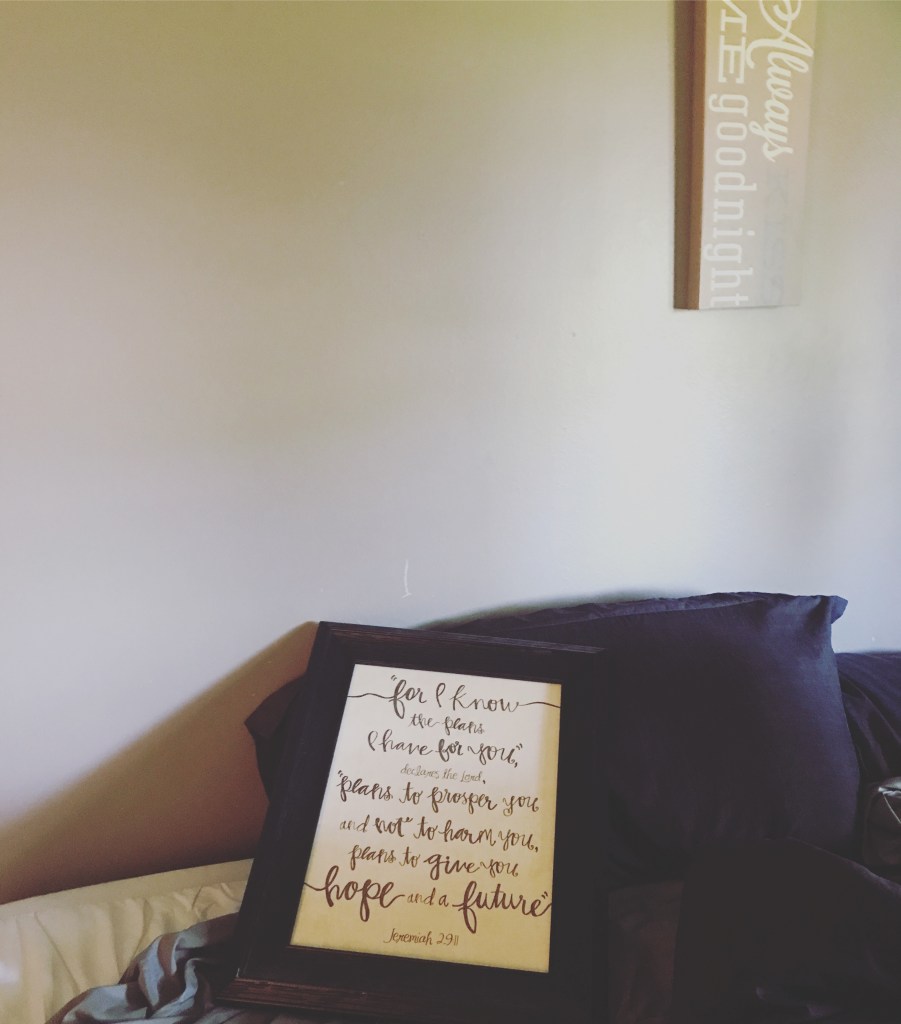 Always
ME goodnight
"for I know
the plans
I have for you",
declares the Lord.
"plans to prosper you
and not" to harm you,
plans to give you
hope and a future"
Jeremiah 29:11